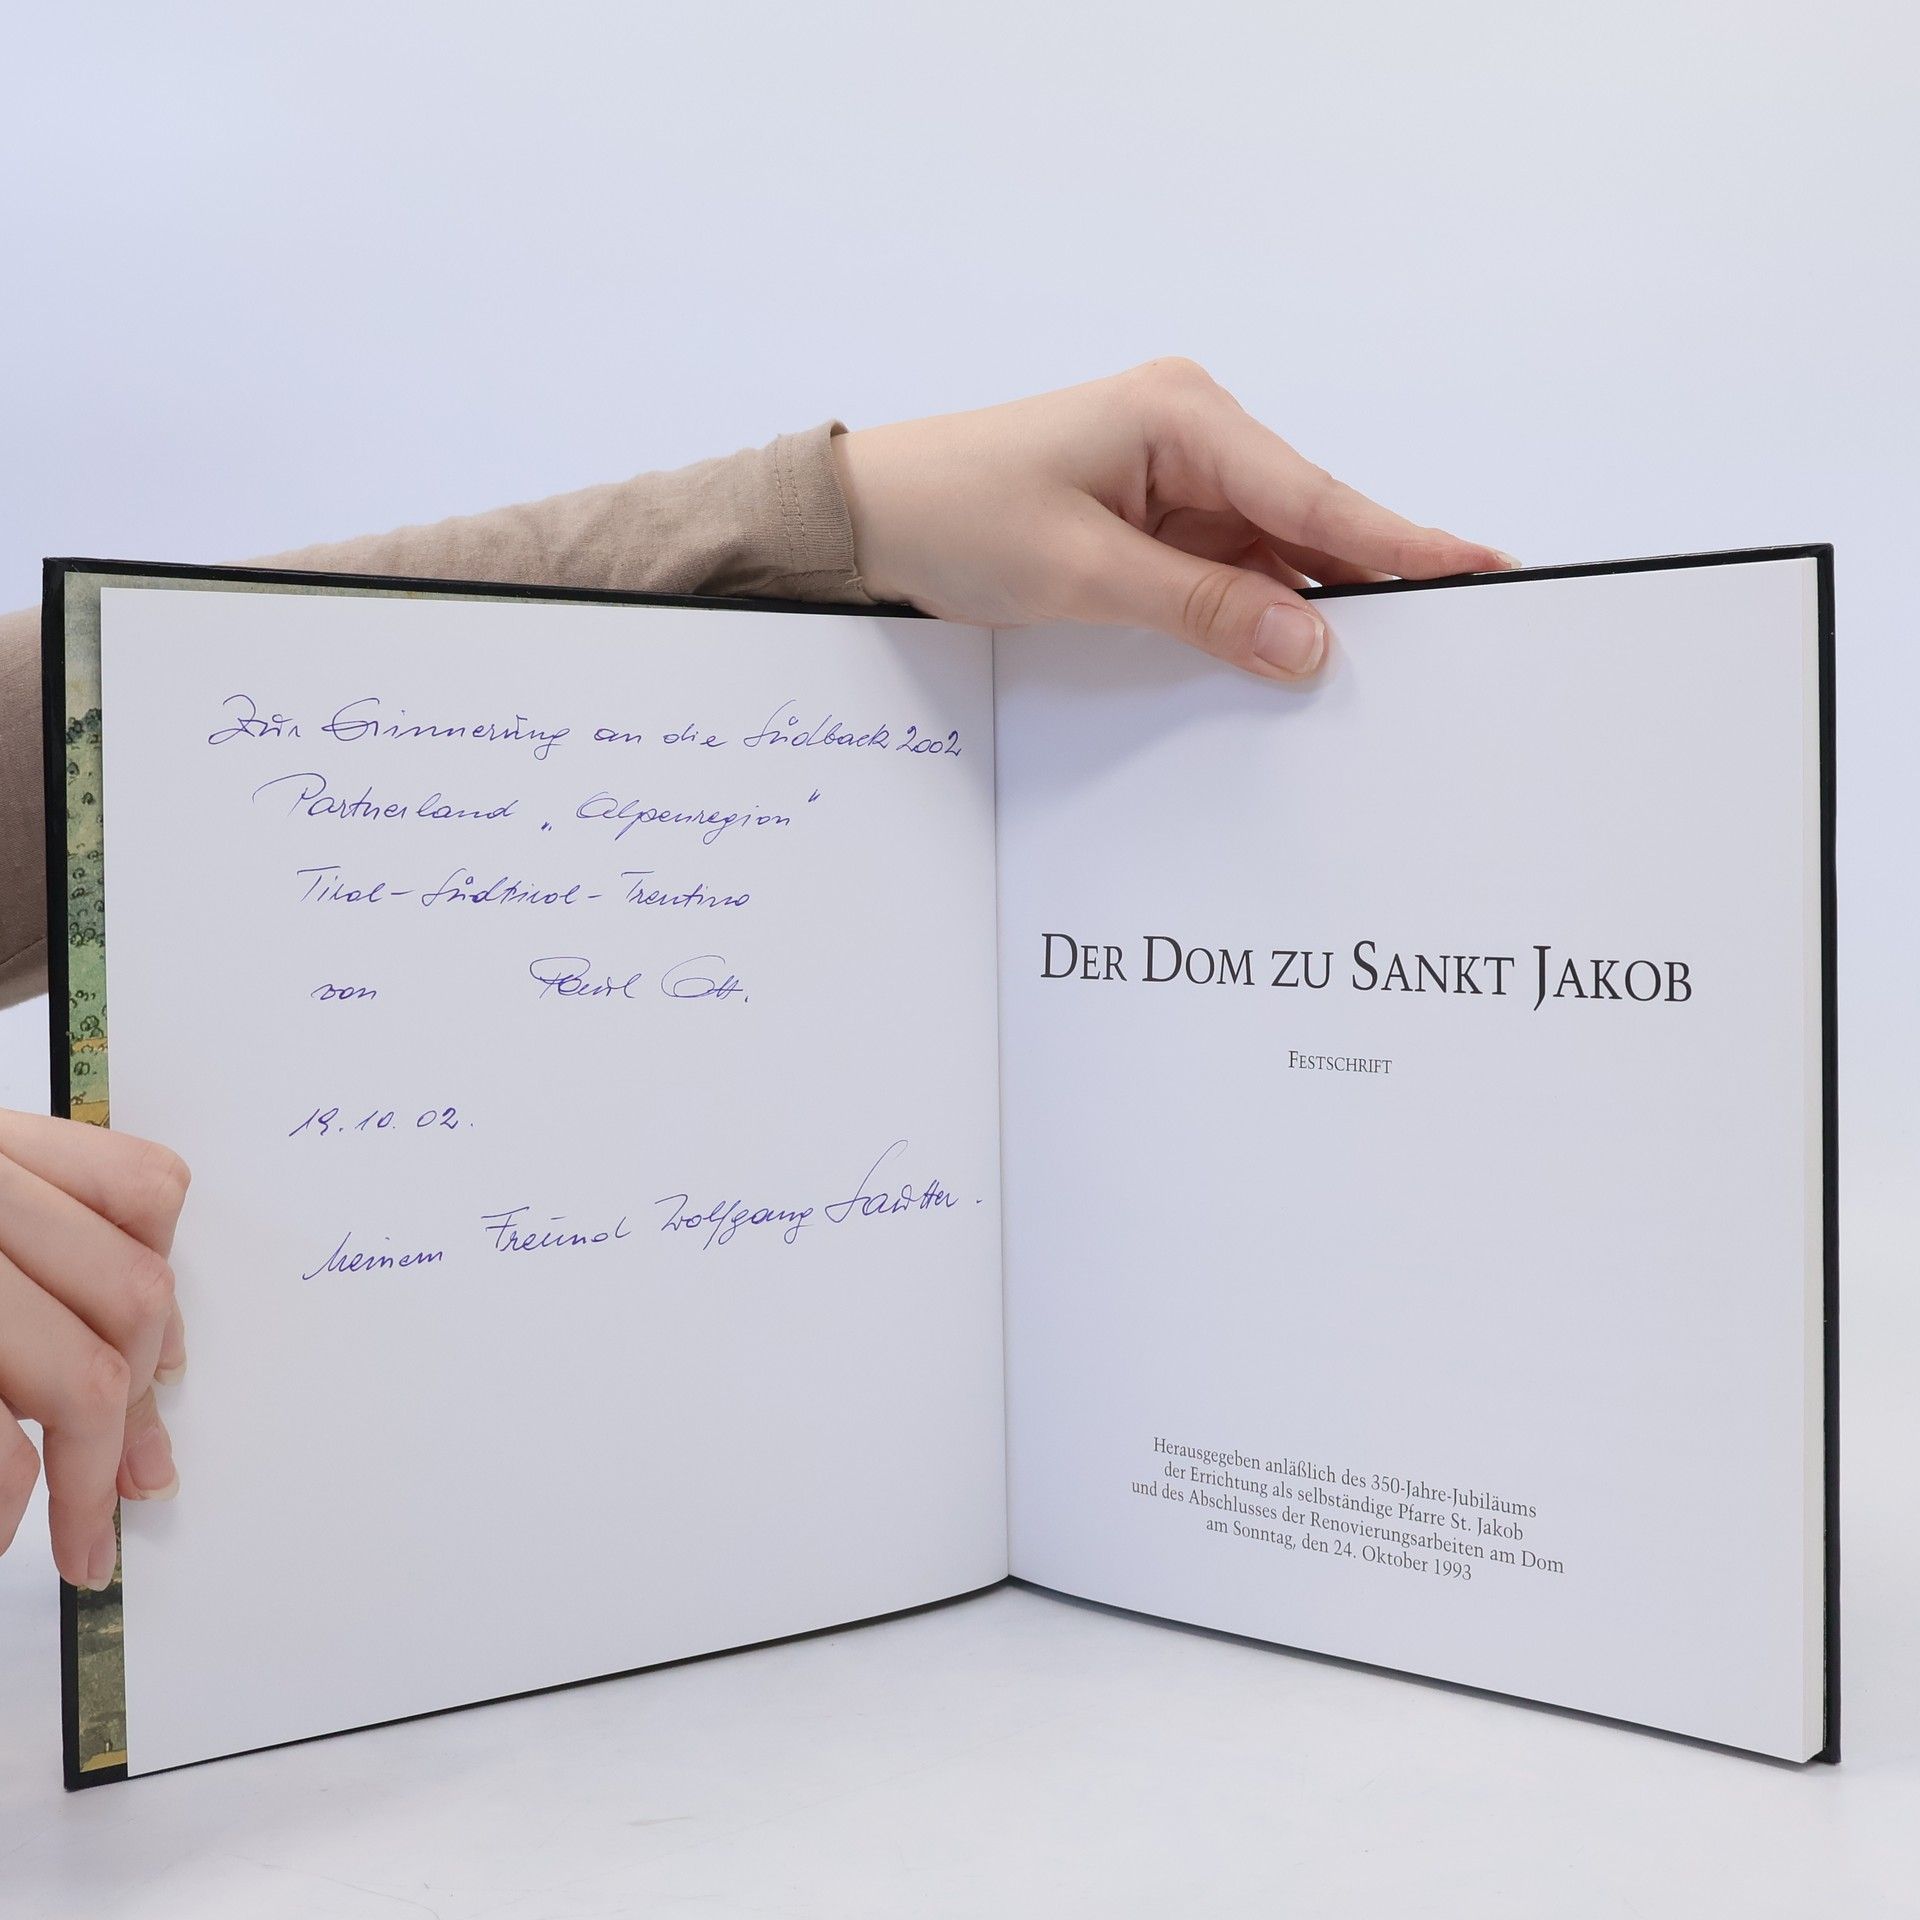 Zur Erinnerung an die Südback 2002
Partnerland „Alpenregion"
Tirol - Südtirol - Trentino
von Paul Ott.
19. 10. 02.
Meinem Freund Wolfgang Sautter.
DER DOM ZU SANKT JAKOB
FESTSCHRIFT
Herausgegeben anläßlich des 350-Jahre-Jubiläums
der Errichtung als selbständige Pfarre St. Jakob
und des Abschlusses der Renovierungsarbeiten am Dom
am Sonntag, den 24. Oktober 1993